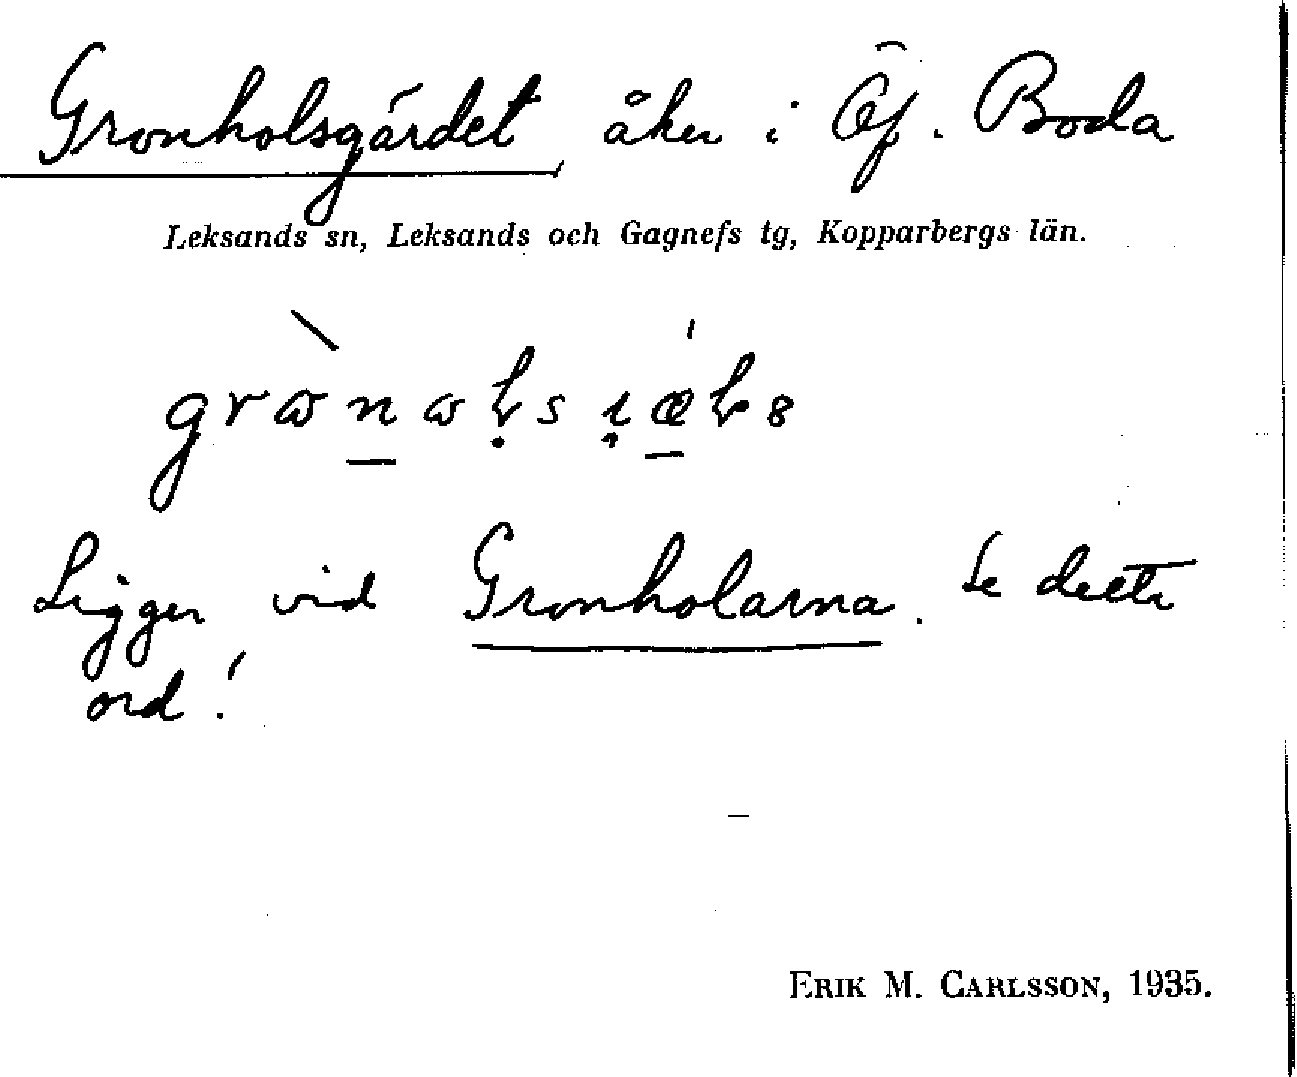 Gronholsgärdet, åker i Öf. Boda
Leksands sn, Leksands och Gagnefs tg, Kopparbergs län.
Ligger vid Gronholarna. Se detta
ord!
ERIK M. CARLSSON, 1935.